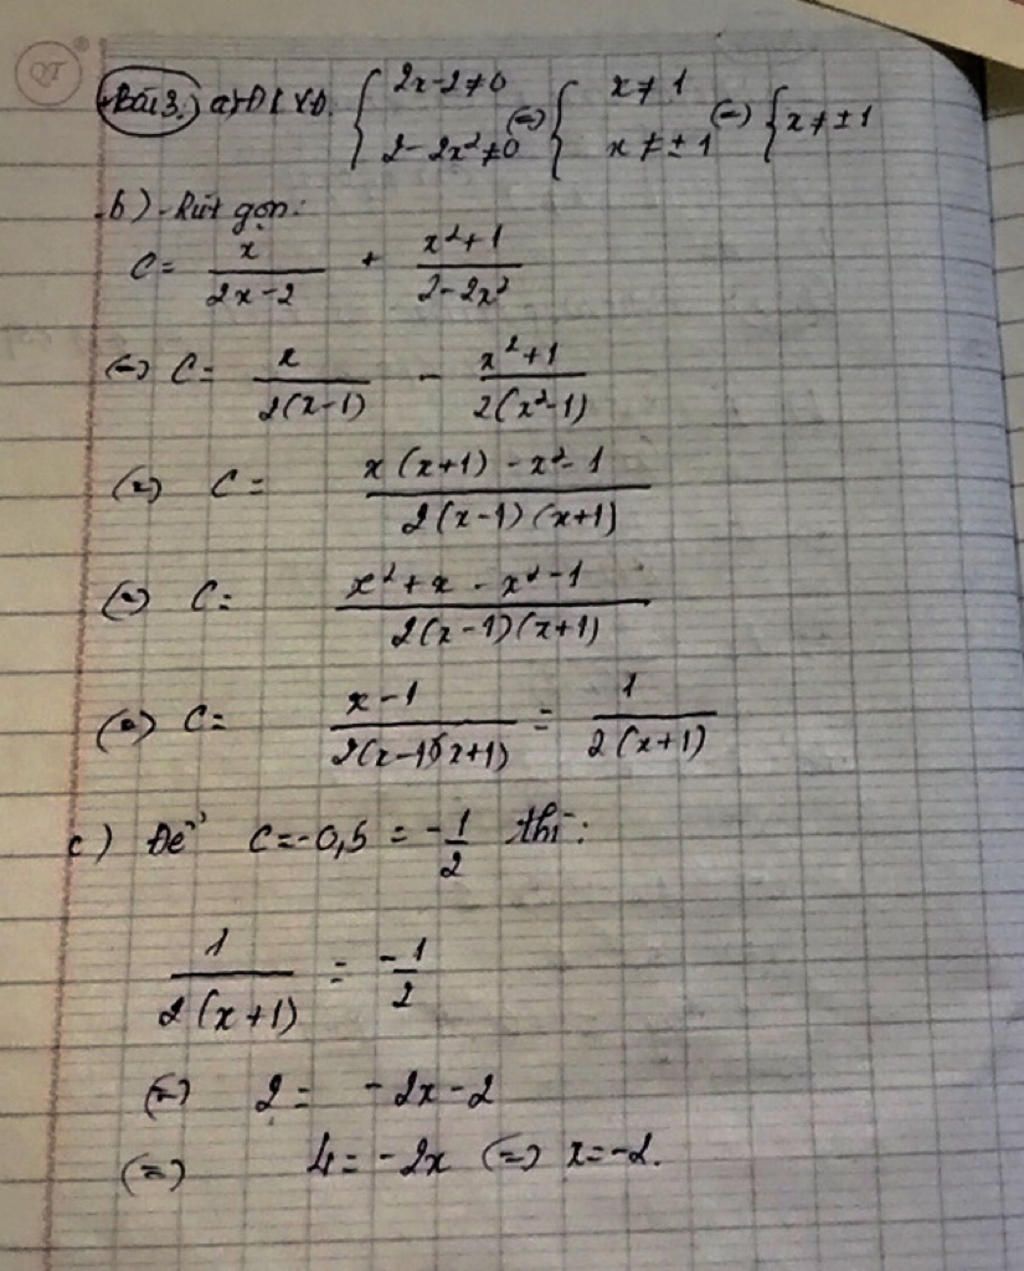 QT
Bài 3. a) ĐKXĐ. { 2x-2≠0 ; 2-2x²≠0 (=) { x≠1 ; x≠±1 (=) { x≠±1
b) - Rút gọn:
C = x/(2x-2) + (x²+1)/(2-2x²)
(=) C = x/(2(x-1)) - (x²+1)/(2(x²-1))
(=) C = (x(x+1) - x²-1)/(2(x-1)(x+1))
(=) C = (x²+x-x²-1)/(2(x-1)(x+1))
(=) C = (x-1)/(2(x-1)(x+1)) = 1/(2(x+1))
c) Để C=-0,5 = -1/2 thì:
1/(2(x+1)) = -1/2
(=) 2 = -2x-2
(=) 4 = -2x (=) x=-2.